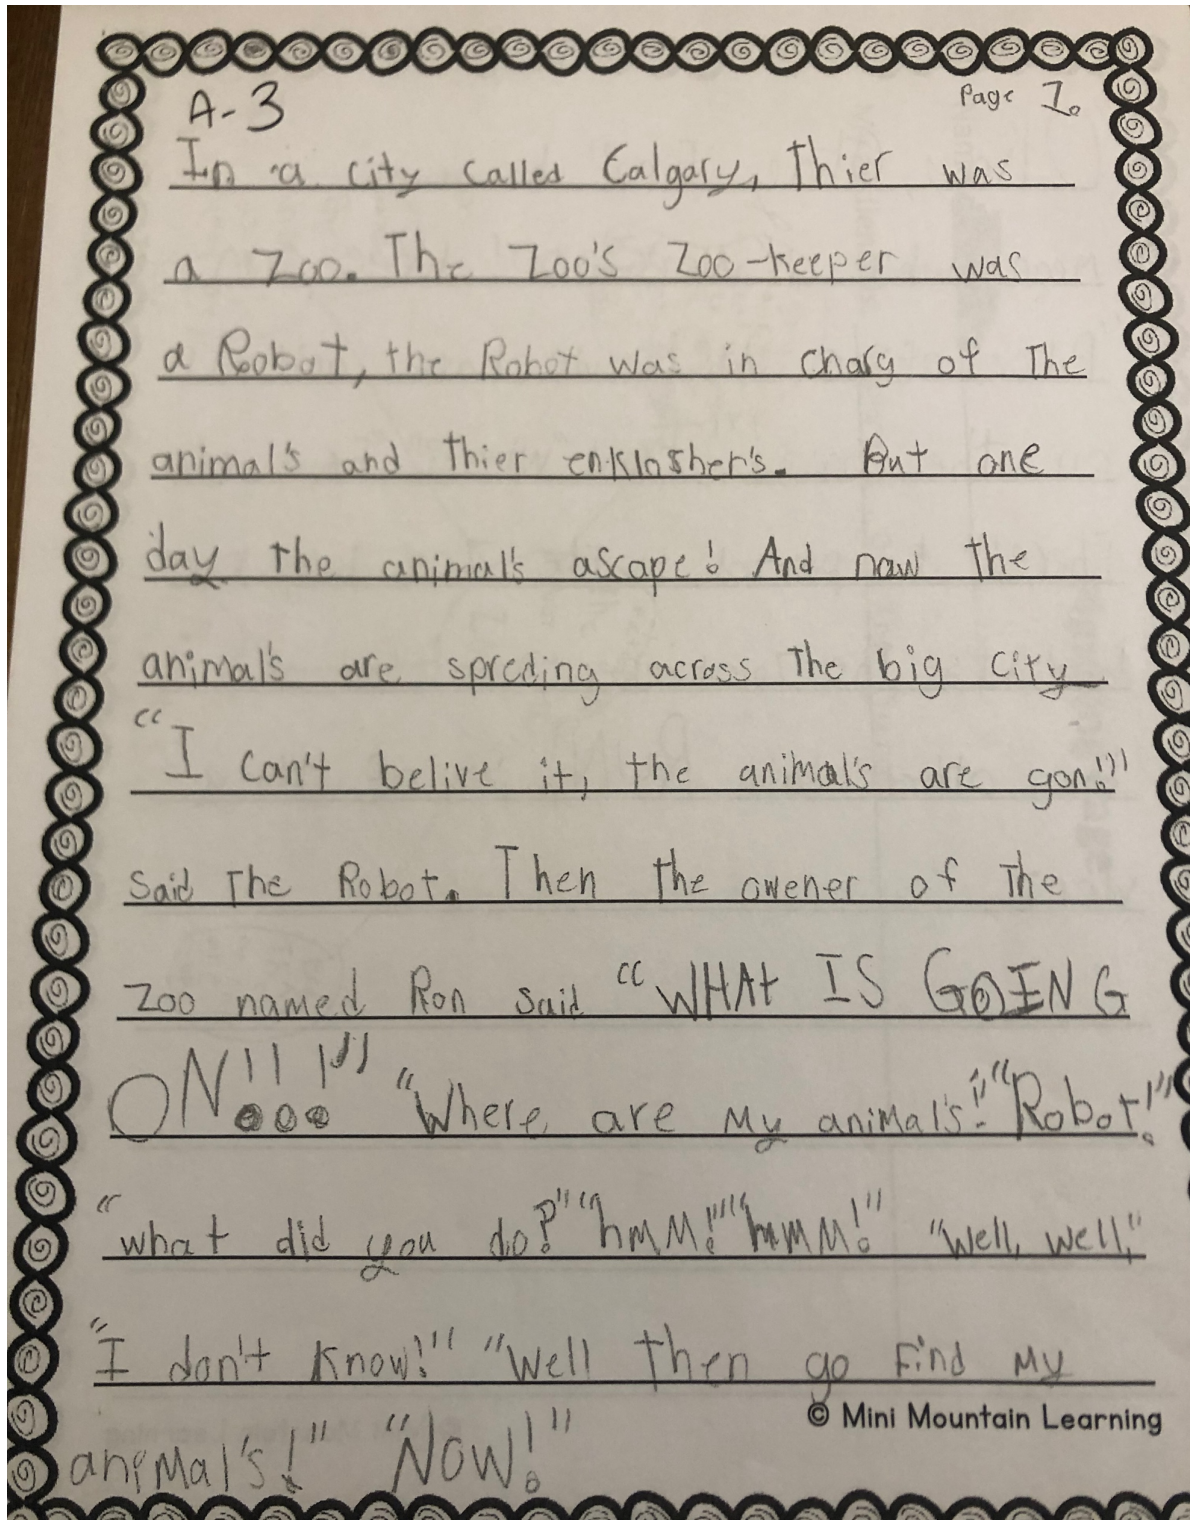 A-3
Page 1.
In a city called Calgary, Thier was
a Zoo. The Zoo's Zoo-keeper was
a Robot, the Robot was in charg of The
animal's and Thier enklosher's. But one
day the animal's ascape! And now the
animal's are spreding across The big city
"I can't belive it, the animal's are gon!!"
said The Robot. Then the owener of The
Zoo named Ron said "WHAt IS GOING
ON!!!" "Where are My animal's!" "Robot!"
"what did you do?" "hmm!" "hmmm!" "Well, well,"
"I don't know!" "Well then go Find My
animal's!" "Now!"
© Mini Mountain Learning